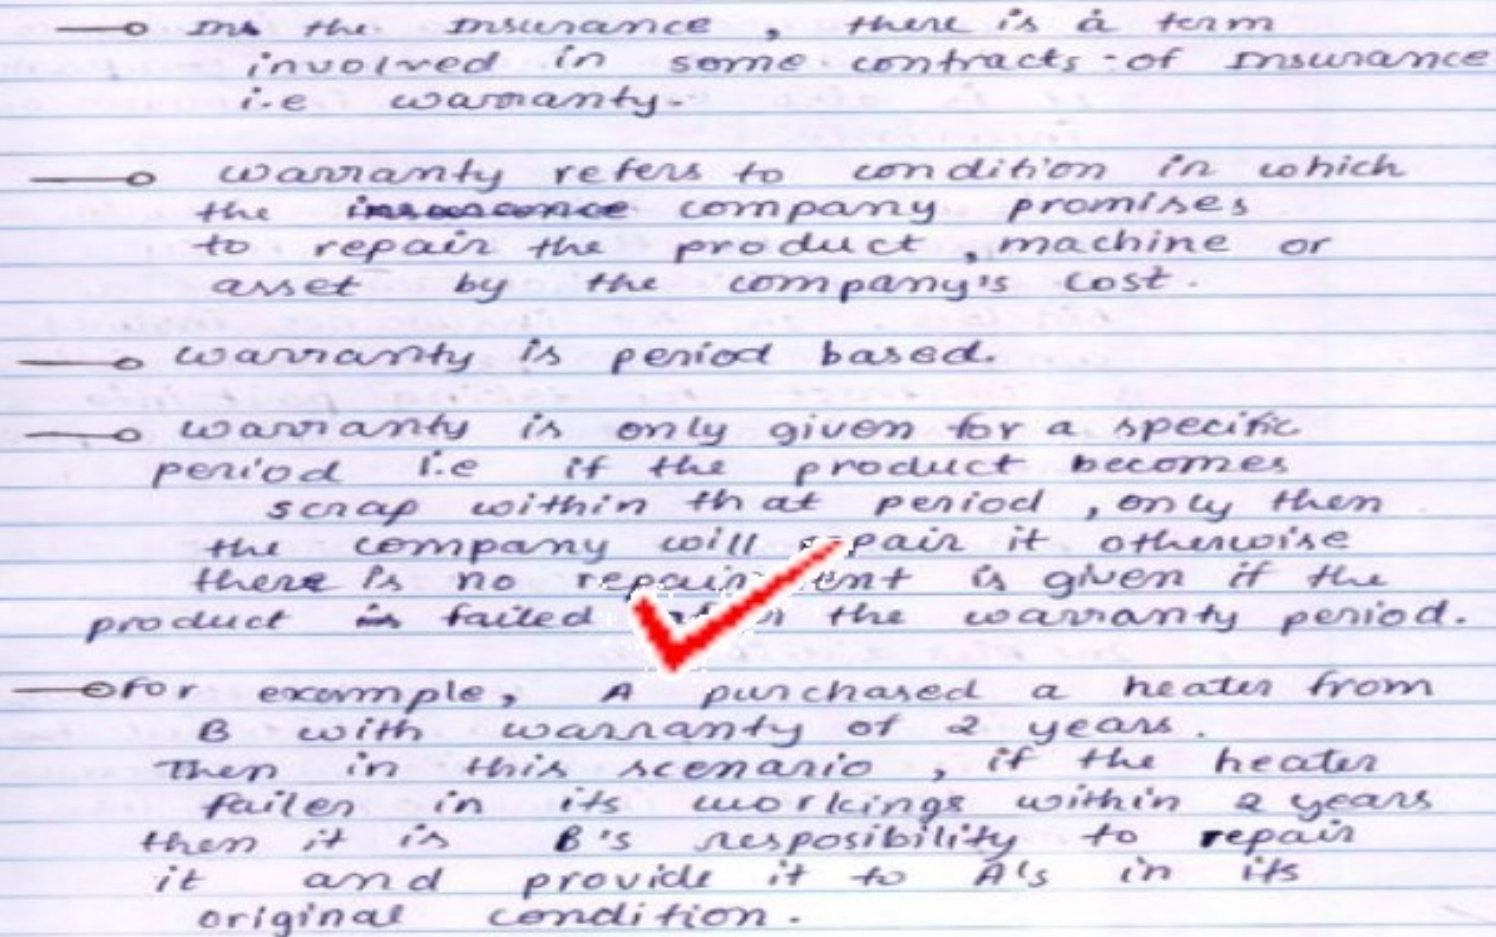 Ins the Insurance, there is a term
involved in some contracts of Insurance
i.e warranty.
warranty refers to condition in which
the company promises
to repair the product, machine or
asset by the company's cost.
warranty is period based.
warranty is only given for a specific
period i.e if the product becomes
scrap within that period, only then
the company will repair it otherwise
there is no is given if the
product failed the warranty period.
For example, A purchased a heater from
B with warranty of 2 years.
Then in this scenario, if the heater
failes in its workings within 2 years
then it is B's resposibility to repair
it and provide it to A's in its
original condition.